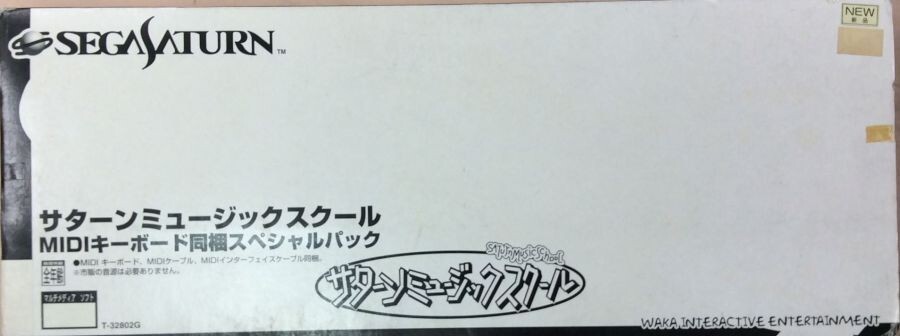 SEGASATURN™
NEW
新品
サターンミュージックスクール
MIDIキーボード同梱スペシャルパック
全年齢
●MIDI キーボード、MIDIケーブル、MIDIインターフェイスケーブル同梱。
※市販の音源は必要ありません。
Saturn Music School
サターンミュージックスクール
マルチメディア ソフト
T-32802G
WAKA INTERACTIVE ENTERTAINMENT